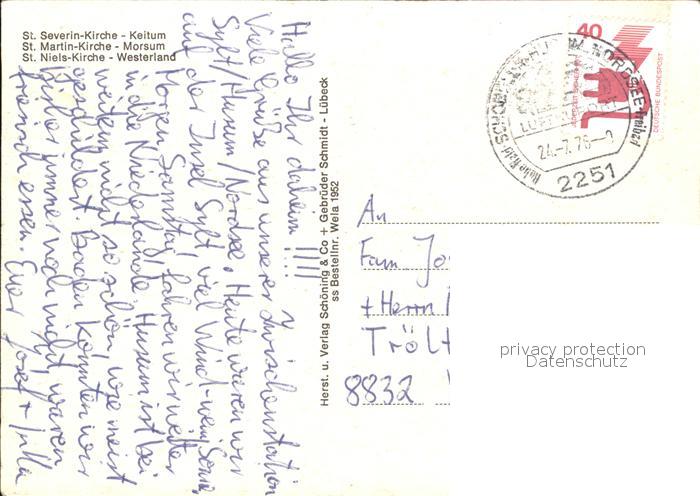 St. Severin-Kirche - Keitum
St. Martin-Kirche - Morsum
St. Niels-Kirche - Westerland
Hallo Ihr daheim!!!!
Viele Grüße aus unserer Zwischenstation
Sylt/Husum/Nordsee. Heute waren wir
auf der Insel Sylt, viel Wind - wenig Sonne.
Morgen Samstag fahren wir weiter
in die Niederlande. Husum ist bei
weitem nicht so schön, wie meist
geschildert. Baden konnten wir
bisher immer noch nicht, waren
essen. Euer Josef + Jutta
Herst. u. Verlag Schöning & Co + Gebrüder Schmidt - Lübeck
ss Bestellnr. Wela 1952
40
DEUTSCHE BUNDESPOST
NORDSEE
24.-7.76-9
2251
An
Fam Jo
+ Herrn
Tröl
8832
privacy protection
Datenschutz